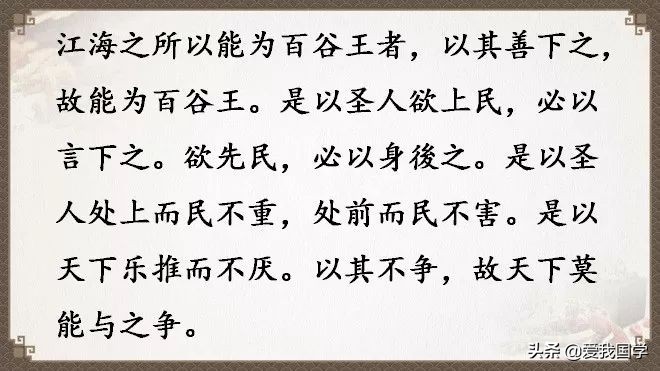 江海之所以能为百谷王者，以其善下之，
故能为百谷王。是以圣人欲上民，必以
言下之。欲先民，必以身後之。是以圣
人处上而民不重，处前而民不害。是以
天下乐推而不厌。以其不争，故天下莫
能与之争。
头条 @爱我国学